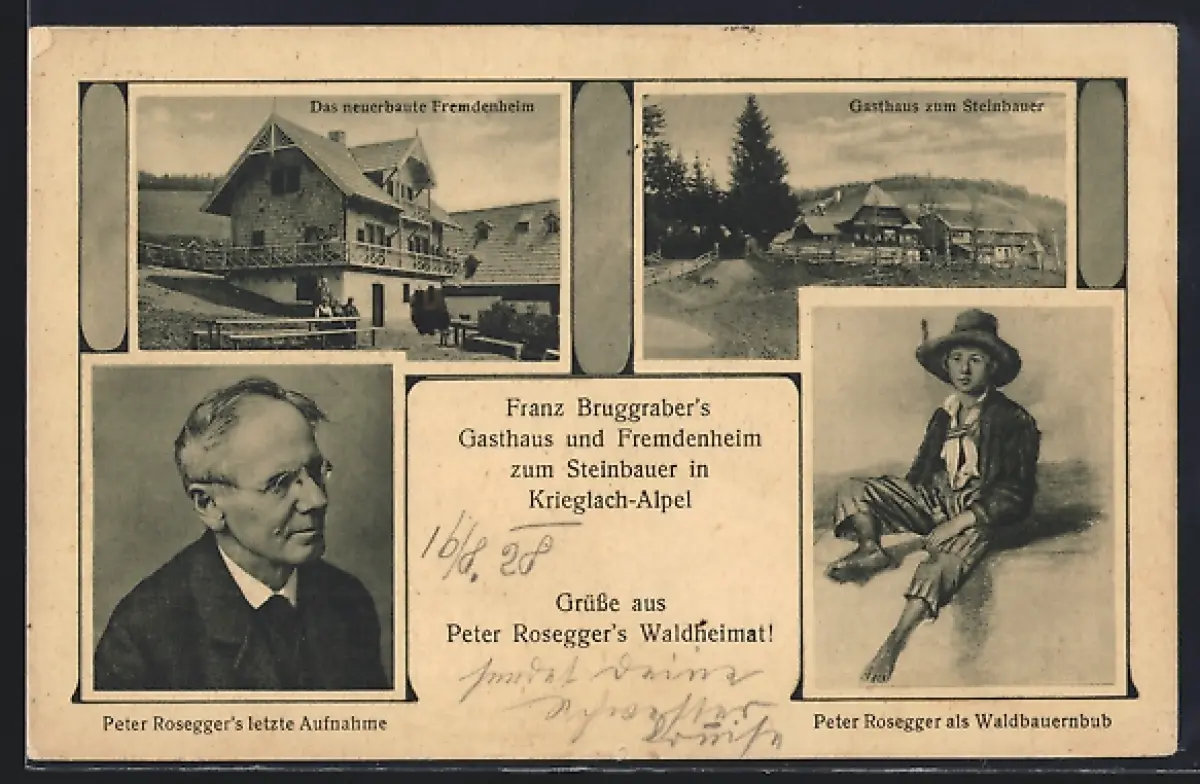 Das neuerbaute Fremdenheim
Gasthaus zum Steinbauer
Franz Bruggraber's
Gasthaus und Fremdenheim
zum Steinbauer in
Krieglach-Alpel
16/8. 28
Grüße aus
Peter Rosegger's Waldheimat!
sendet Deine
Schwester
Louise
Peter Rosegger's letzte Aufnahme
Peter Rosegger als Waldbauernbub